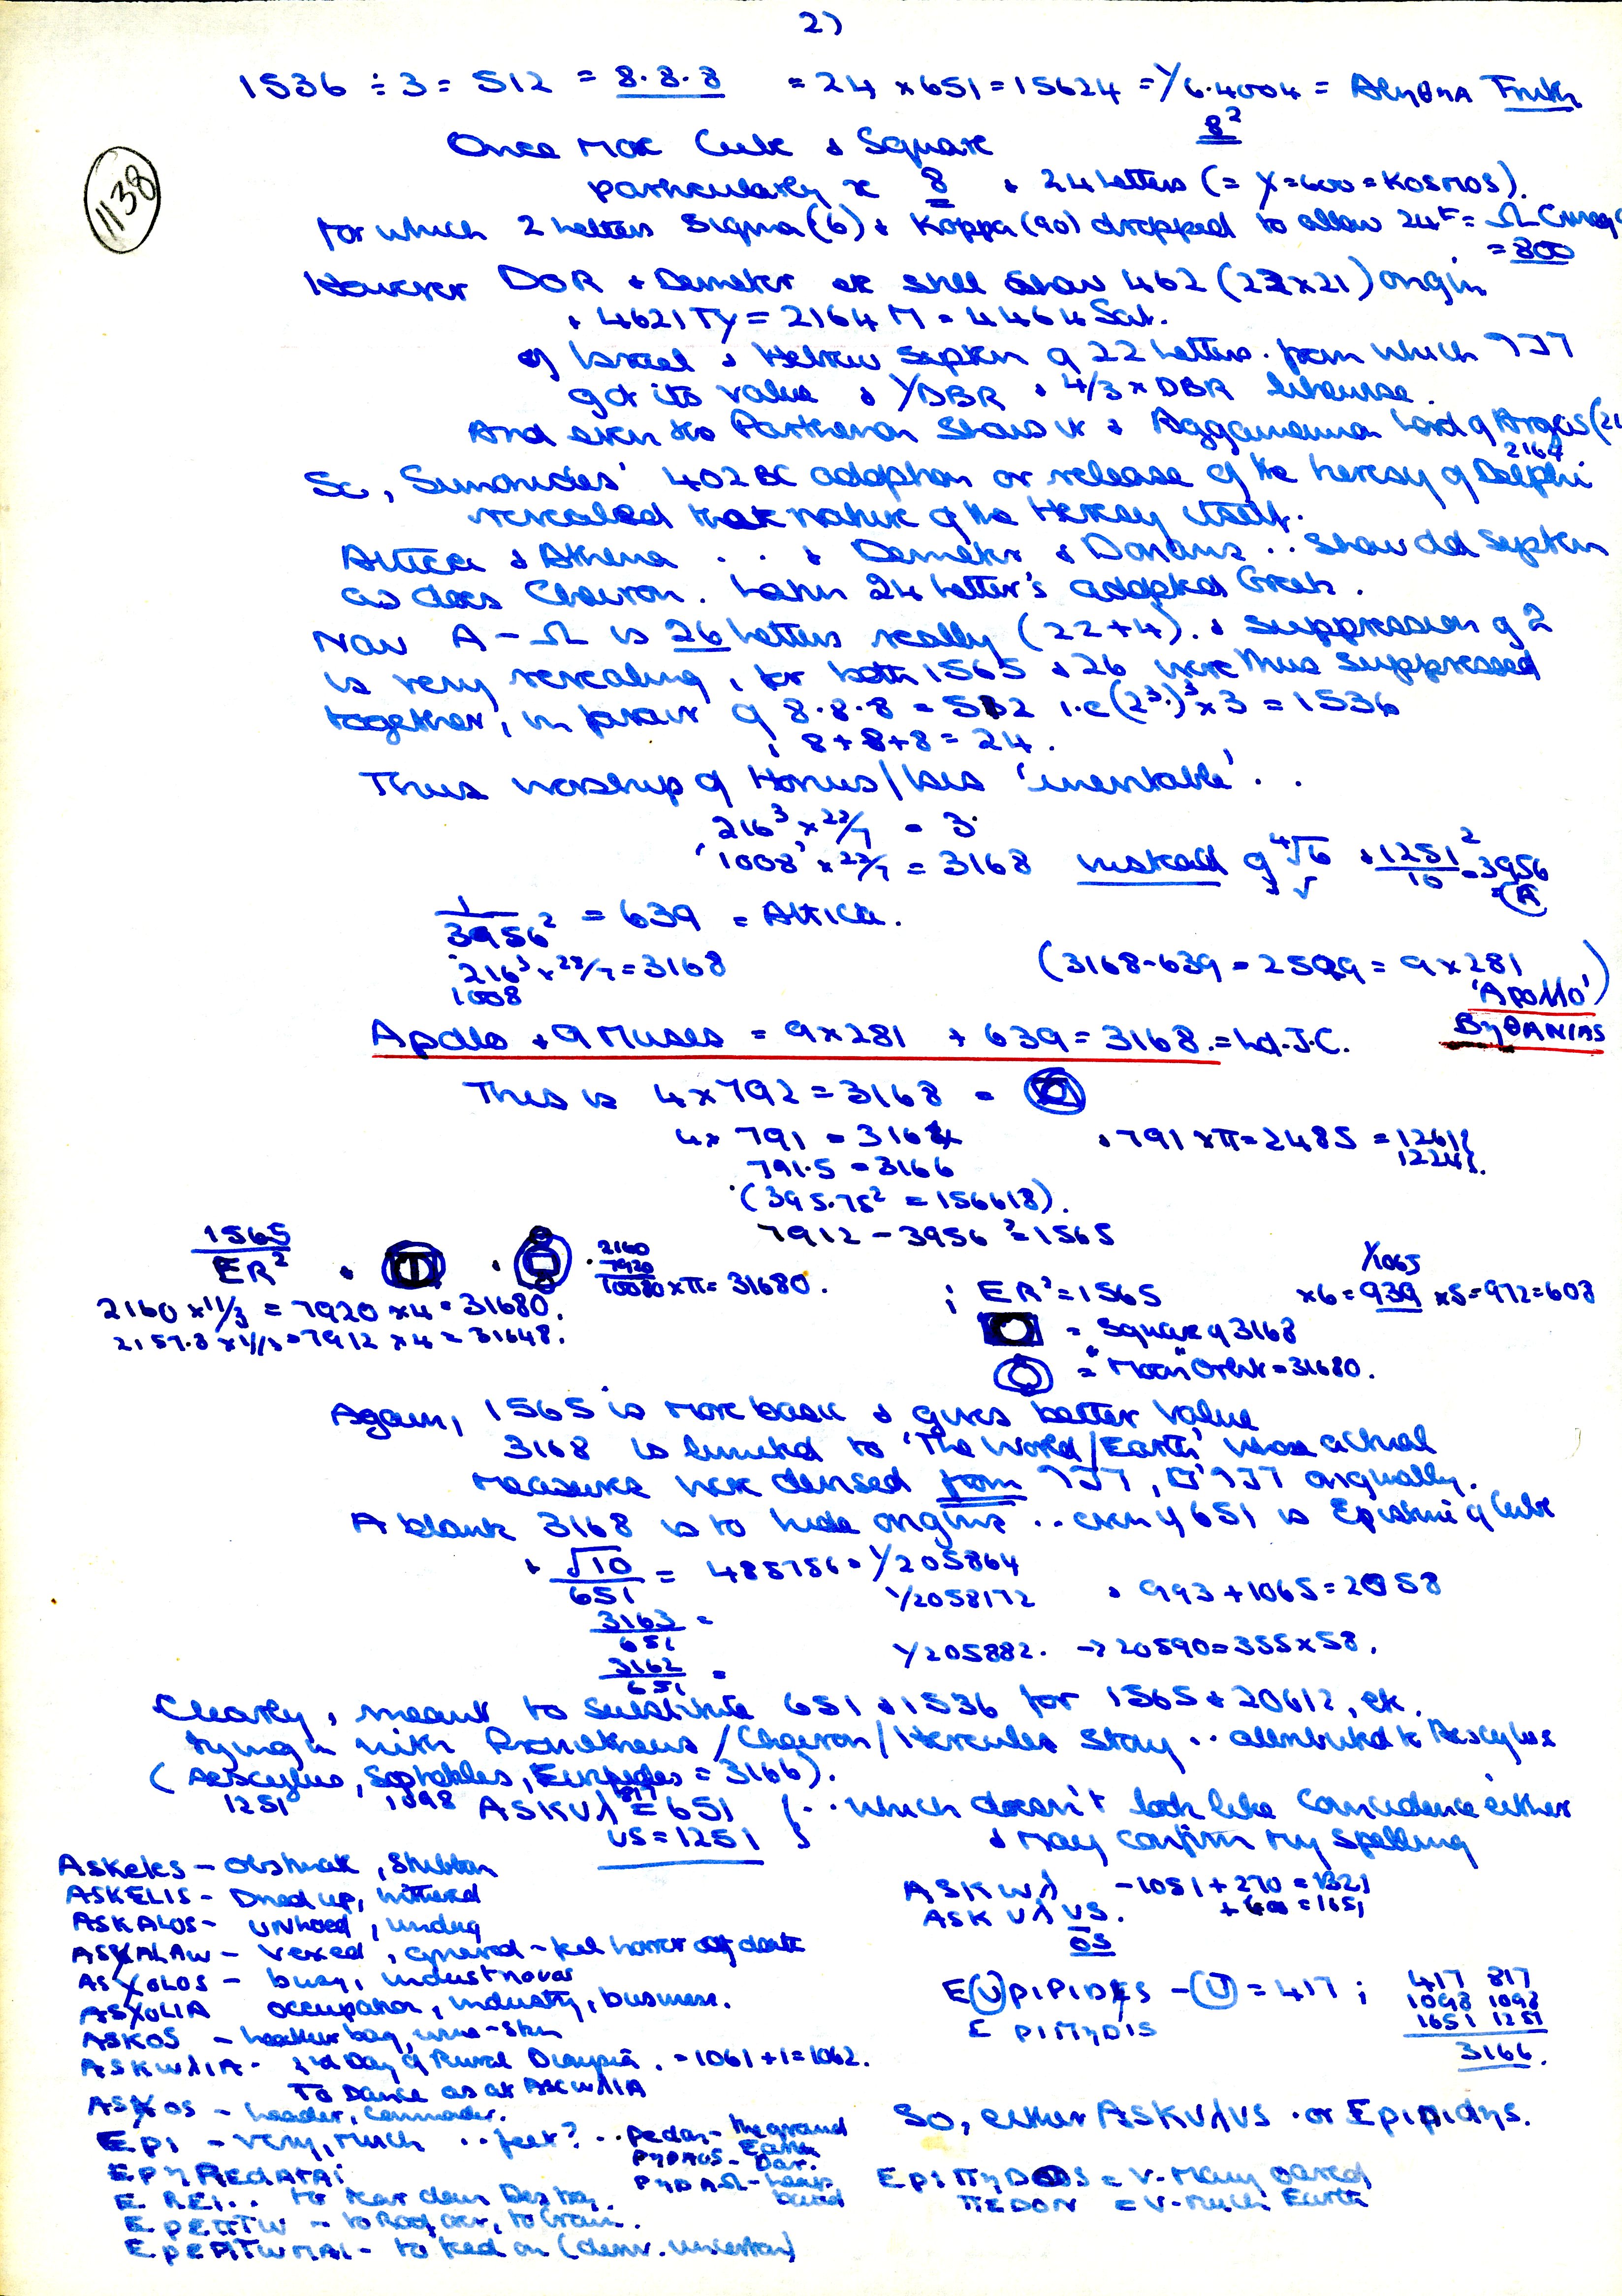 2)
1536 ÷ 3 = 512 = 8·8·8 = 24 × 651 = 15624 = 1/6.4004 = AlηθηA Truth
8²
Once more Cube & Square
particularly x 8 & 24 letters (= X = 600 = KOSMOS).
1138
for which 2 letters Sigma (6) & Koppa (90) dropped to allow 24th = Ω Omeg
= 800
However DOR & Demeter etc still show 462 (22x21) origin
& 4621 Ty = 2164 M = 4464 Sat.
of Israel & Hebrew Septen of 22 letters. from which רבד
got its value & 1/DBR & 4/3 × DBR likewise.
And even the Parthenon shows it & Aggamemnon Lord of Argos (21
2164
So, Simonides' 402 BC adoption or release of the heresy of Delphi
revealed that nature of the Heresy itself.
Attica & Athena .. & Demeter & Dorians .. show old Septen
as does Cheiron. Later 24 letter's adopted Greek.
Now A – Ω is 26 letters really (22+4). & suppression of 2
is very revealing, for both 1565 & 26 were thus suppressed
together, in favour of 8·8·8 = 512 i.e (2³)³ x 3 = 1536
; 8+8+8 = 24.
Thus worship of Horus/Isis 'inevitable' . .
216³ × 22/7 = 3·
'1008' × 22/7 = 3168 instead of ⁴√6 & 1251²/10 = 3956
1/3956² = 639 = Attica.
216³ × 22/7 = 3168
1008
(3168 - 639 = 2529 = 9 x 281
'Apollo')
Apollo + 9 Muses = 9 x 281 + 639 = 3168. = Ld. J.C.
BηθANIAS
This is 4 x 792 = 3168 =
4 x 791 = 3164
& 791 x π = 2485 = 1261
1224
791.5 = 3166
(395.75² = 156618).
7912 - 3956² = 1565
1565/ER² & . . 2160
7920
10080 x π = 31680.
2160 x 11/3 = 7920 x 4 = 31680.
2157.8 x 11/3 = 7912 x 4 = 31648.
; ER² = 1565
1/1065
x6 = 939 x5 = 972 = 608
= Square of 3168
= "Moon" Orbit = 31680.
Again, 1565 is more basic & gives better value
3168 is limited to 'The World/Earth' whose actual
measures were derived from רבד, רבד originally.
A blank 3168 is to hide origins .. even if 651 is Episteme of Cube
& √10/651 = 485756 = 1/205864
1/2058172 & 993 + 1065 = 2058
3163/651 =
1/205882. → 20590 = 355 x 58.
3162/651 =
Clearly, meant to substitute 651 & 1536 for 1565 & 20612, etc.
tying in with Prometheus/Cheiron/Hercules Story .. attributed to Aescylus
(Aescylus, Sophokles, Euripides = 3166).
1251 1098 817
ASKUλ = 651 ( .. which doesn't look like coincidence either
US = 1251 & may confirm my spelling
Askeles – obstinate, stubborn
ASKELIS – Dried up, withered
ASKALOS – unhoed, undug
ASXALAW – Vexed, grieved – feel horror of death
ASXOLOS – busy, industrious
ASXOLIA occupation, industry, business.
ASKOS – leather bag, wine-skin
ASKWλIA – 2nd Day of Rural Dionysia. = 1061 + 1 = 1062.
To Dance as at ASCWλIA
ASXOS – leader, commander.
Epi – very, much .. feet? .. pedon – the ground
Earth
ASKWλ – 1051 + 270 = 1321
+ 600 = 1651
ASKUλUS.
OS
E(U)pIPIDES – (U) = 417 ;
E PIΠηDIS
417 817
1098 1098
1651 1251
3166.
So, either ASKUλUS . or Epipidηs.
PηDAΩ – leap
bound
EPηREDATAI
E REI .. to tear down Destroy.
E pEΠTW – to Roof over, to Crown.
EpiΠηDOS = V-Many oared
ΠEDON = V-Much Earth